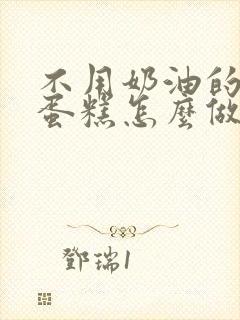 不用奶油的
蛋糕怎麼做
鄧瑞1